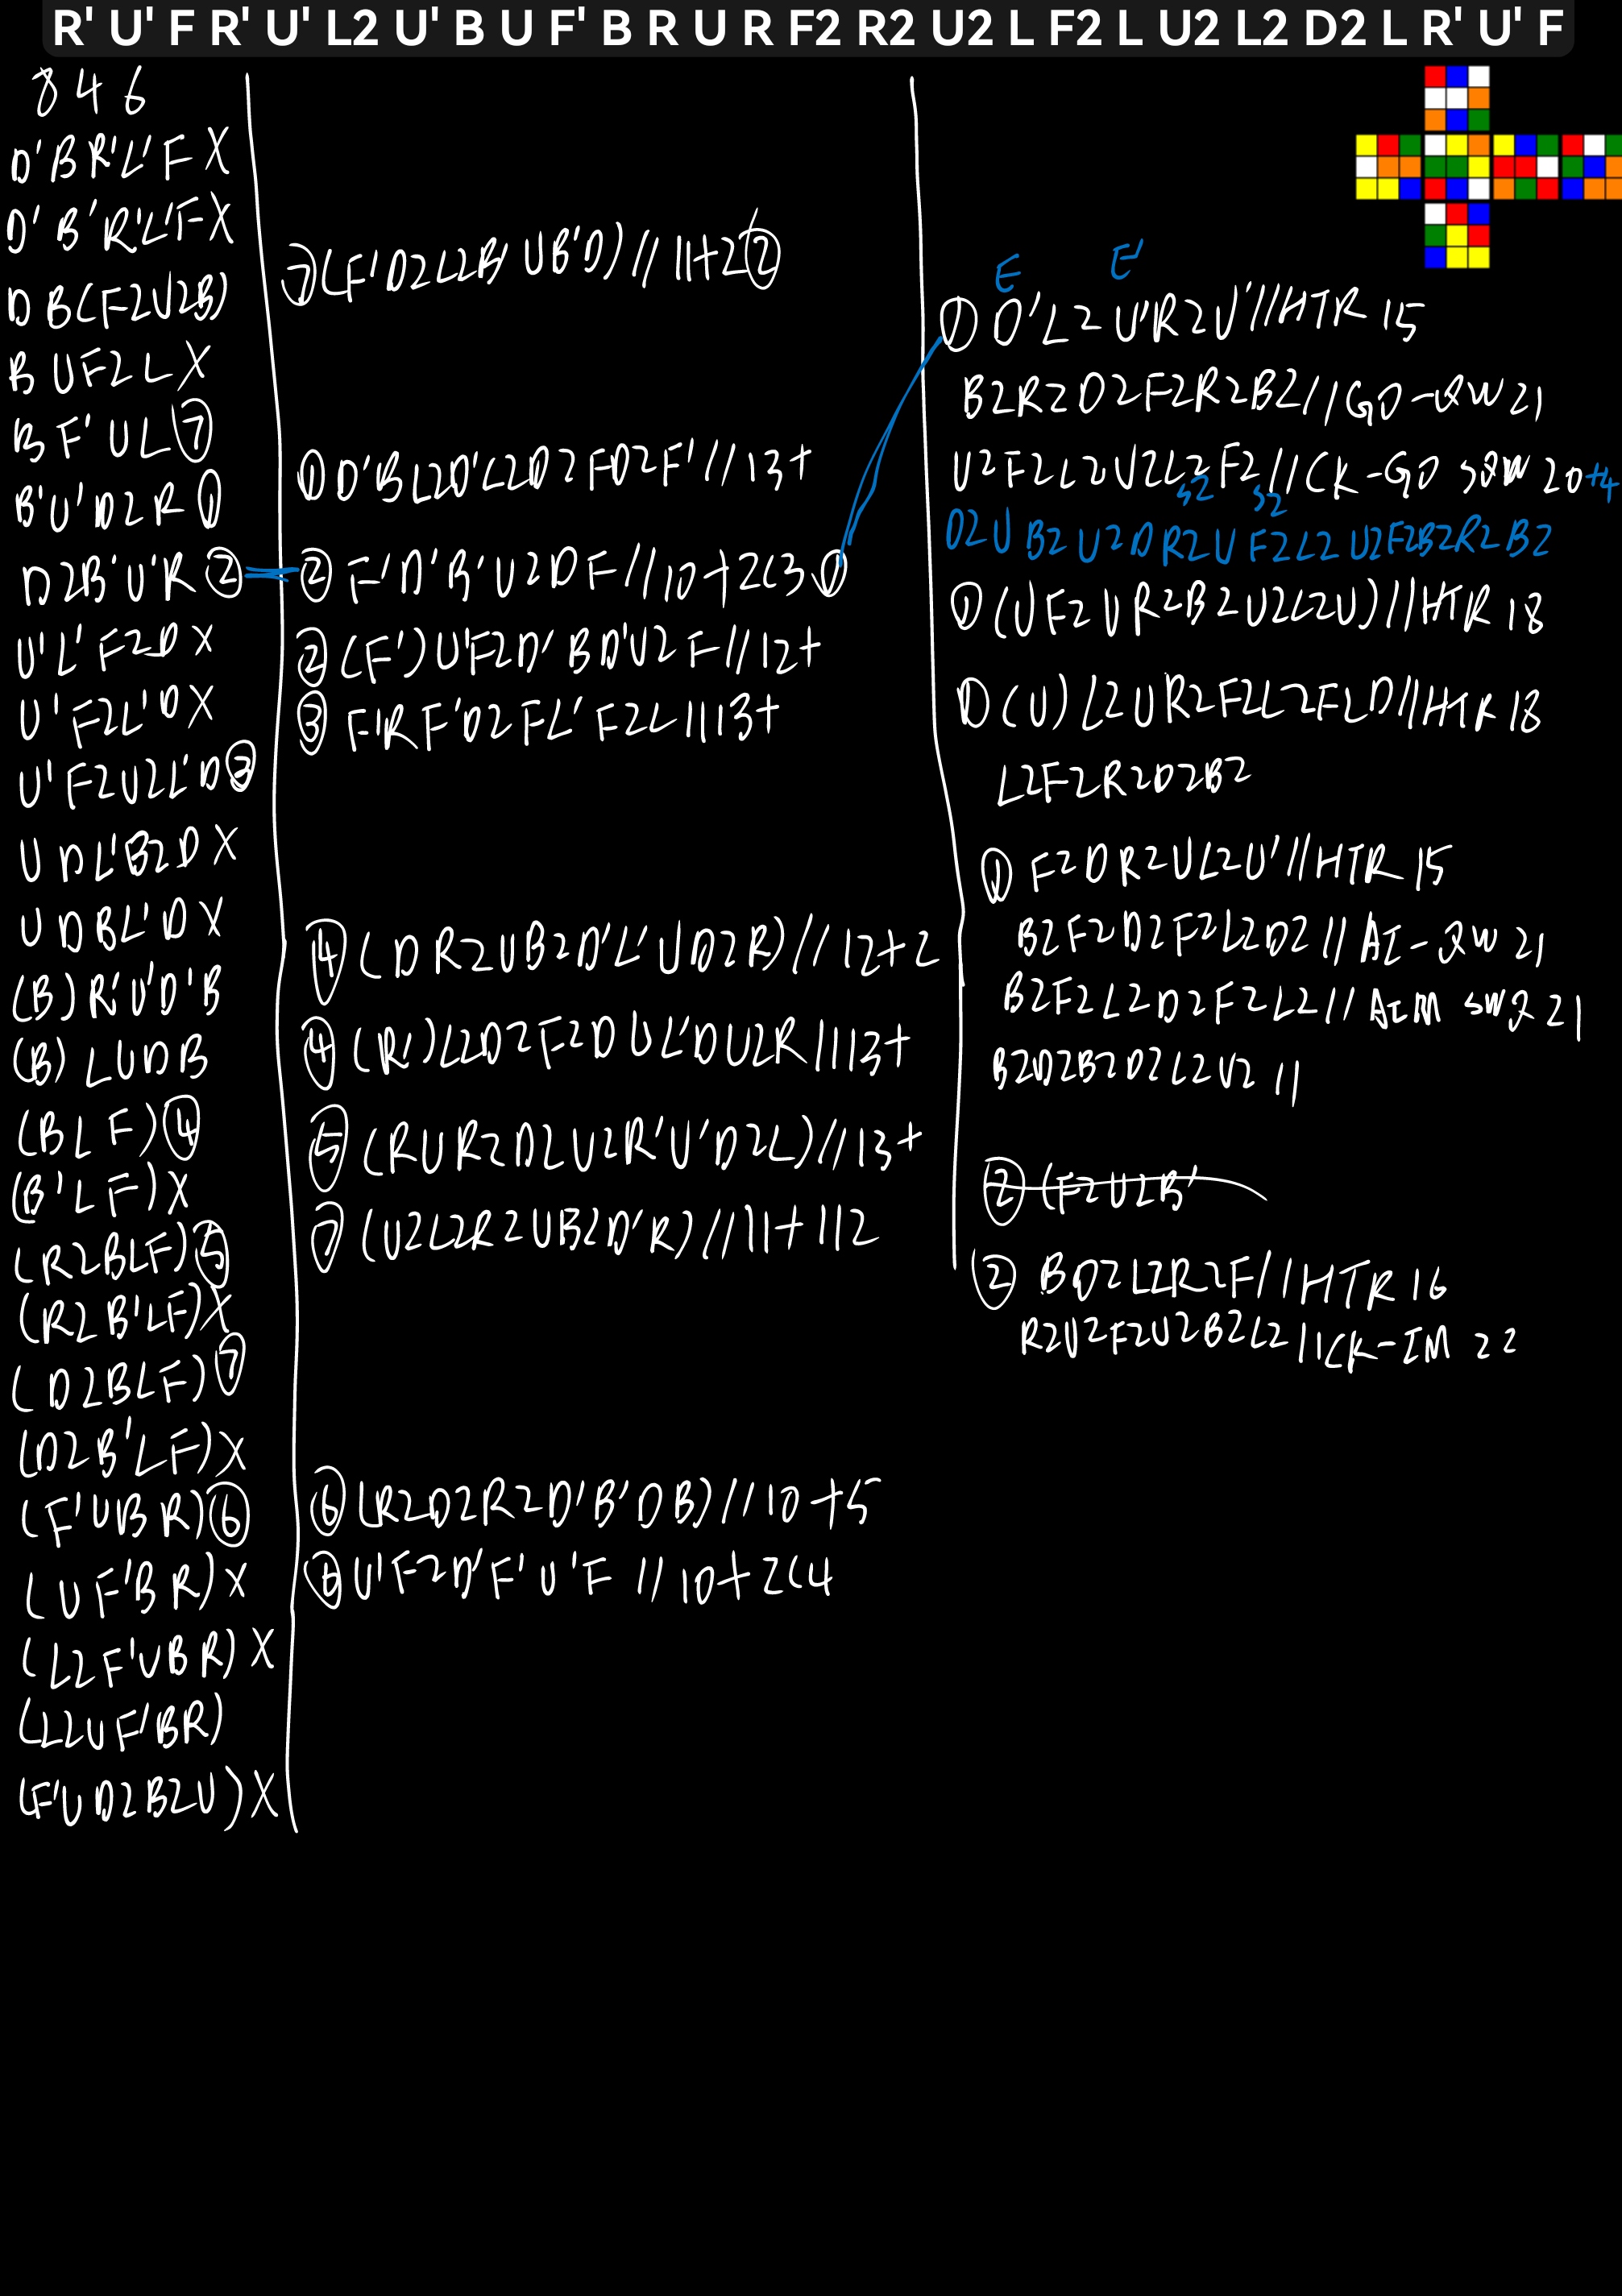 R' U' F R' U' L2 U' B U F' B R U R F2 R2 U2 L F2 L U2 L2 D2 L R' U' F
846
D'BR'L'F X
D'B'R'L'F X
DB(F2U2B)
BUF2L X
BF'UL ⑦
B'U'D2R ①
D2B'U'R ②
U'L'F2D X
U'F2L'D X
U'F2U2L'D ③
UDL'B2D X
UDBL'D X
(B)R'U'D'B
(B)LUDB
(BLF) ④
(B'LF) X
(R2BLF) ⑤
(R2B'LF) X
(D2BLF) ⑦
(D2B'LF) X
(F'UBR) ⑥
(UF'BR) X
(L2F'UBR) X
(L2UF'BR)
(F'UD2B2U) X
⑦ (F'D2L2B'UB'D) // 11+2 ②
① D'BL2D'L2D2FD2F' // 13+
② F'D'B'U2DF // 10+2C3 ①
② (F')U'F2D'BD'U2F // 12+
③ F'RF'D2FL'F2L // 13+
④ (DR2UB2D'L'UD2R) // 12+2
④ (R')L2D2F2DUL'DU2R // 13+
⑤ (RUR2D2U2R'U'D2L) // 13+
⑦ (U2L2R2UB2D'R) // 11+112
⑥ (R2D2R2D'B'DB) // 10+5
⑥ U'F2D'F'U'F // 10+2C4
E E'
① D'L2U'R2U' // HTR 15
B2R2D2F2R2B2 // GO-QW 21
U2F2L2U2L2F2 // CK-GO SQW 20+4
S2 S2
D2UB2U2DR2UF2L2U2F2B2R2B2
① (UF2UR2B2U2L2U) // HTR 18
① (U)L2UR2F2L2F2D // HTR 18
L2F2R2D2B2
① F2DR2UL2U' // HTR 15
B2F2D2F2L2D2 // AI-QW 21
B2F2L2D2F2L2 // AIM SWQ 21
B2D2B2D2L2U2 //
② (F2U2B'
② BD2L2R2F // HTR 16
R2U2F2U2B2L2 // CK-IM 22